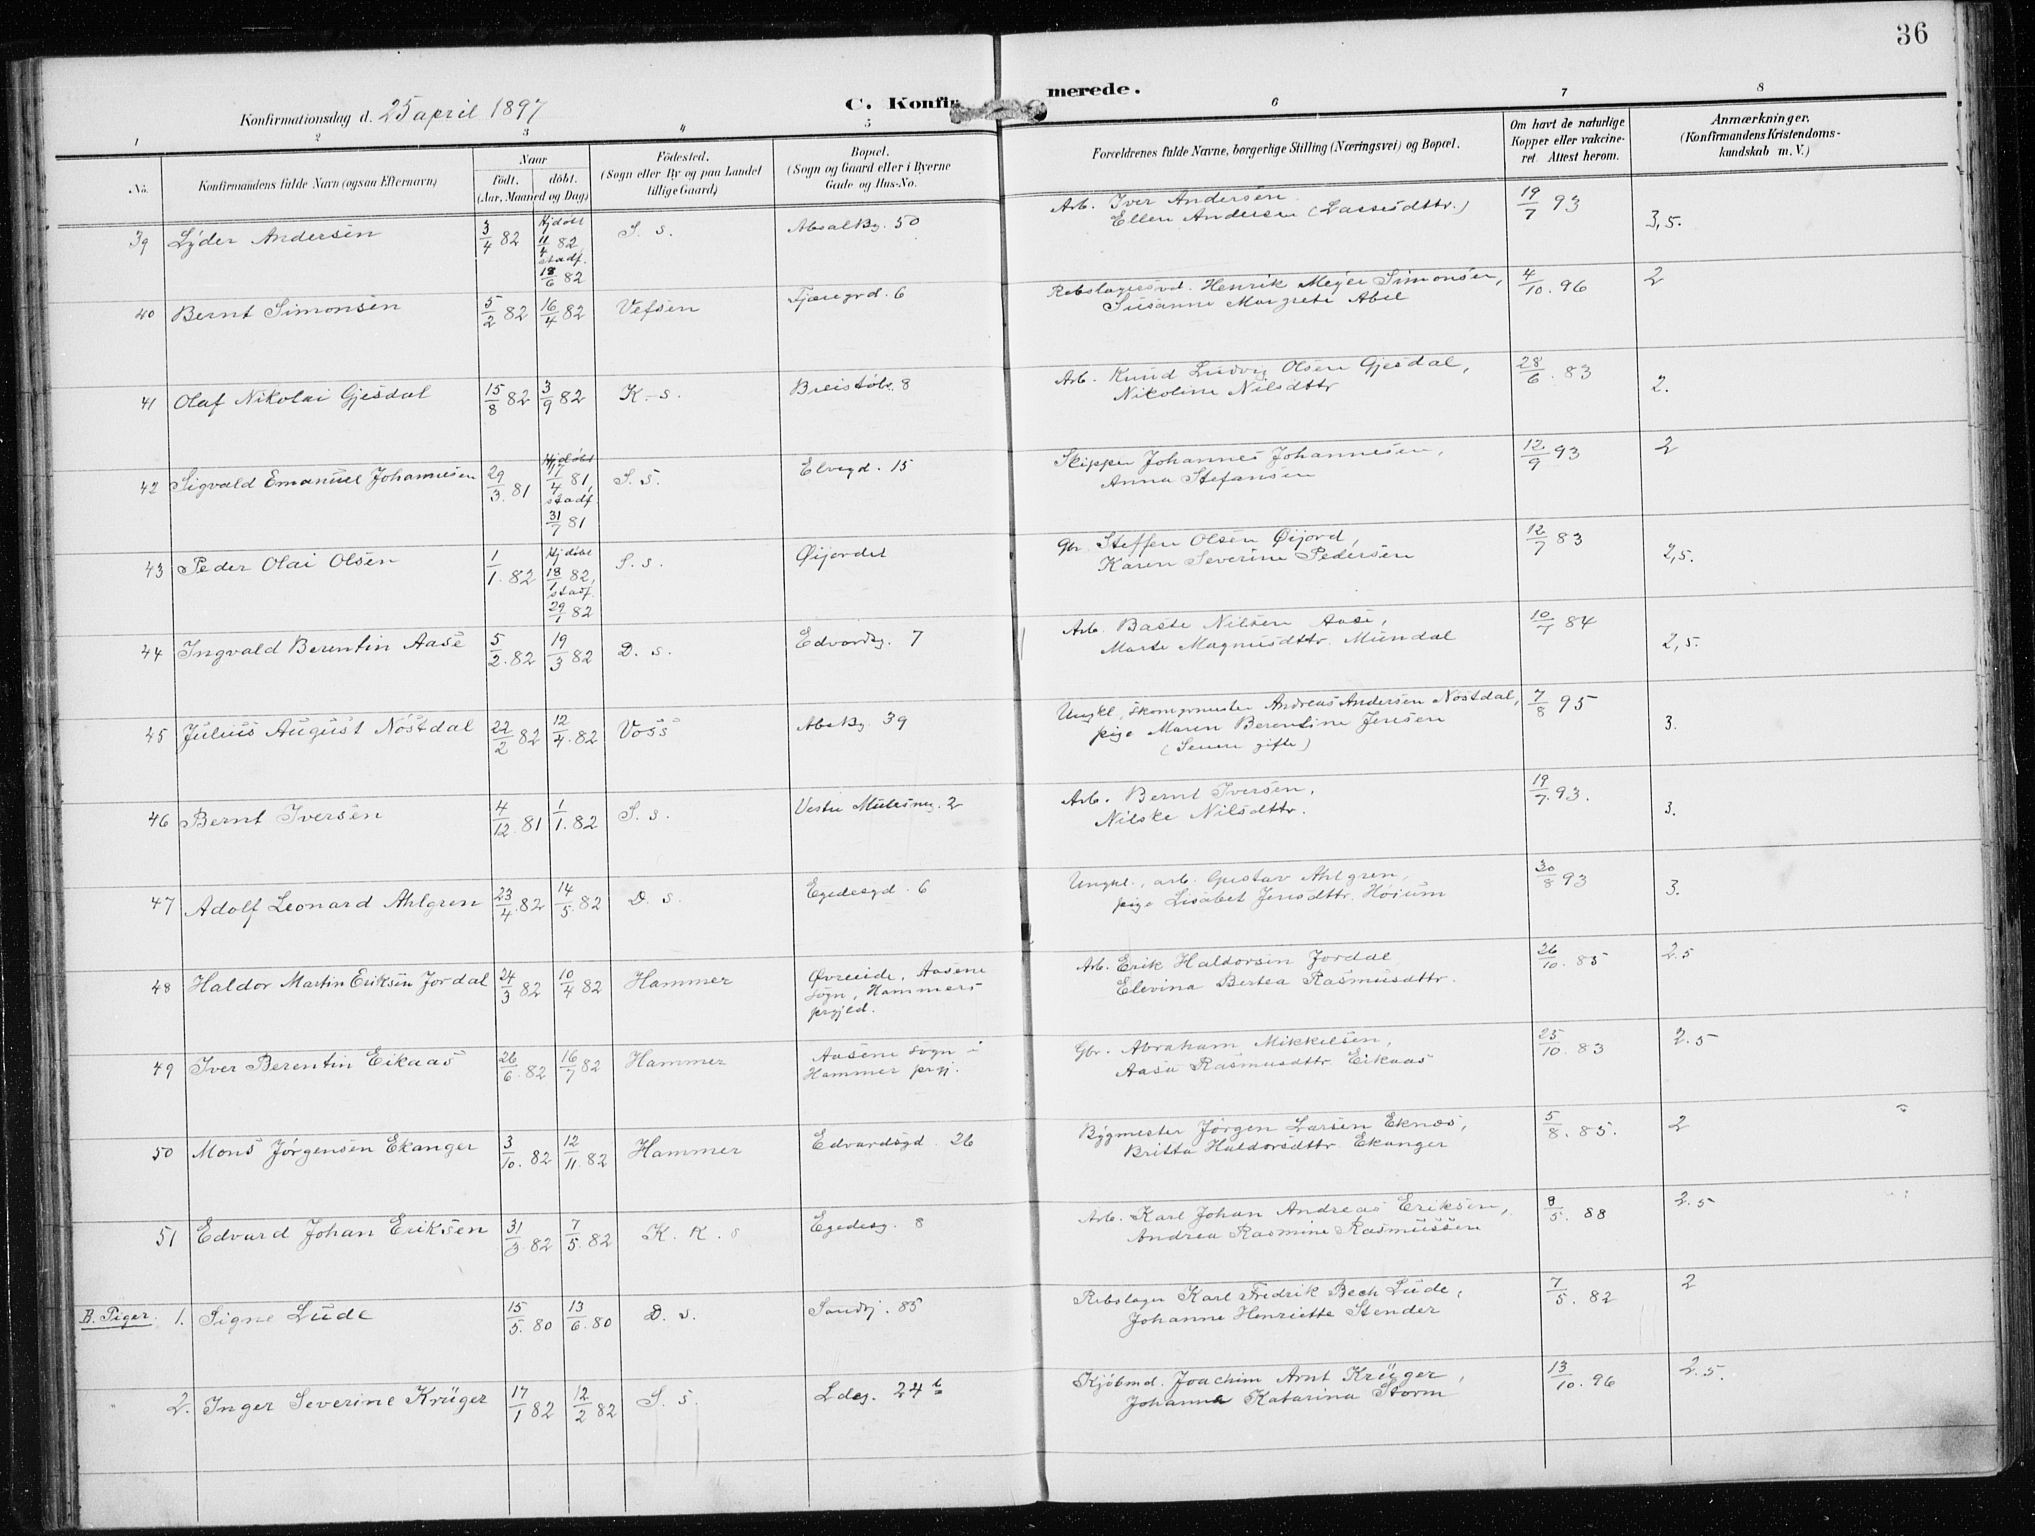 36
C. Konfirmerede.
Konfirmationsdag d. 25 april 1897
1 2 3 4 5 6 7 8
No. Konfirmandens fulde Navn (ogsaa Efternavn) Naar født. døbt. (Aar, Maaned og Dag) Fødested. (Sogn eller By og paa Landet tillige Gaard) Bopæl. (Sogn og Gaard eller i Byerne Gade og Hus-No. Forældrenes fulde Navne, borgerlige Stilling (Næringsvei) og Bopæl. Om havt de naturlige Kopper eller vakcineret. Attest herom. Anmærkninger. (Konfirmandens Kristendomskundskab m. V.)
39 Lyder Andersen 3/4 82 Hjdøbt 11/4 82 stadf. 18/6 82 S. s. Absalkg. 50 Arb. Iver Andersen 19/7 93 3,5.
Ellen Andersen (Lassesdttr.)
40 Bernt Simonsen 5/2 82 16/4 82 Vefsen Fjæregrd. 6 Rebslagersvd. Henrik Meyer Simonsen, 4/10. 96 2
Susanne Margrete Abel
41 Olaf Nikolai Gjesdal 15/8 82 3/9 82 K. s. Breistølv. 8 Arb. Knud Ludvig Olsen Gjesdal, 28/6. 83 2.
Nikoline Nilsdttr
42 Sigvald Emanuel Johannesen 29/3. 81 Hjdøbt 17/4 81, stadf. 31/7 81 S. s. Elvegd. 15 Skipper Johannes Johannesen, 12/9 93 2
Anna Stefansen
43 Peder Olai Olsen 1/1. 82 Hjdøbt 18/1 82, stadf. 29/1 82 S. s. Øijordet Gbr. Steffen Olsen Øijord, 12/7 83 2,5.
Karen Severine Pedersen
44 Ingvald Berentin Aase 5/2. 82 19/3 82 D. s. Edvardsg. 7 Arb. Baste Nilsen Aase, 10/7 84 2,5.
Marte Magnusdttr. Mundal
45 Julius August Nøstdal 22/2 82 12/4. 82 Voss Abskg. 39 Ungkl. skomgrmester Andreas Andersen Nøstdal, 7/8 95 3.
pige Maren Berentine Jensen
(Senere gifte)
46 Bernt Iversen 4/12. 81 1/1. 82 S. s. Vestre Mulesmg. 2 Arb. Bernt Iversen, 19/7. 93. 3.
Nilske Nilsdttr.
47 Adolf Leonard Ahlgren 23/4. 82 14/5. 82 D. s. Egedesgd. 6 Ungkl., arb. Gustav Ahlgren, 30/8 93 3.
pige Lisabet Jensdttr. Høium
48 Haldor Martin Eriksen Jordal 24/3 82 10/4 82 Hammer Øvreeide, Aasene Arb. Erik Haldorsen Jordal, 26/10. 85 2.5
sogn, Hammers Elevina Bertea Rasmusdttr.
prgjld.
49 Iver Berentin Eikaas 26/6. 82 16/7 82 Hammer Aasene sogn i Gbr. Abraham Mikkelsen, 25/10. 83 2.5
Hammer prgj. Aasa Rasmusdttr. Eikaas
50 Mons Jørgensen Ekanger 3/10. 82 12/11. 82 Hammer Edvardsgd. 26 Bygmester Jørgen Larsen Eknes, 5/8. 85. 2
Britta Haldorsdttr. Ekanger
51 Edvard Johan Eriksen 31/3. 82 7/5. 82 K. K. s Egedesg. 8 Arb. Karl Johan Andreas Eriksen, 8/5. 88 2.5
Andrea Rasmine Rasmussen
B. Piger. 1. Signe Lude 15/5. 80 13/6. 80 D. s. Sandvj. 85 Rebslager Karl Fredrik Bech Lude, 7/5. 82 2
Johanne Henriette Stender
2. Inger Severine Krüger 17/1 82 12/2 82 S. s. Ldeg. 24 b Kjøbmd. Joachim Arnt Krüger, 13/10. 96 2.5.
Johanne Katarina Storm